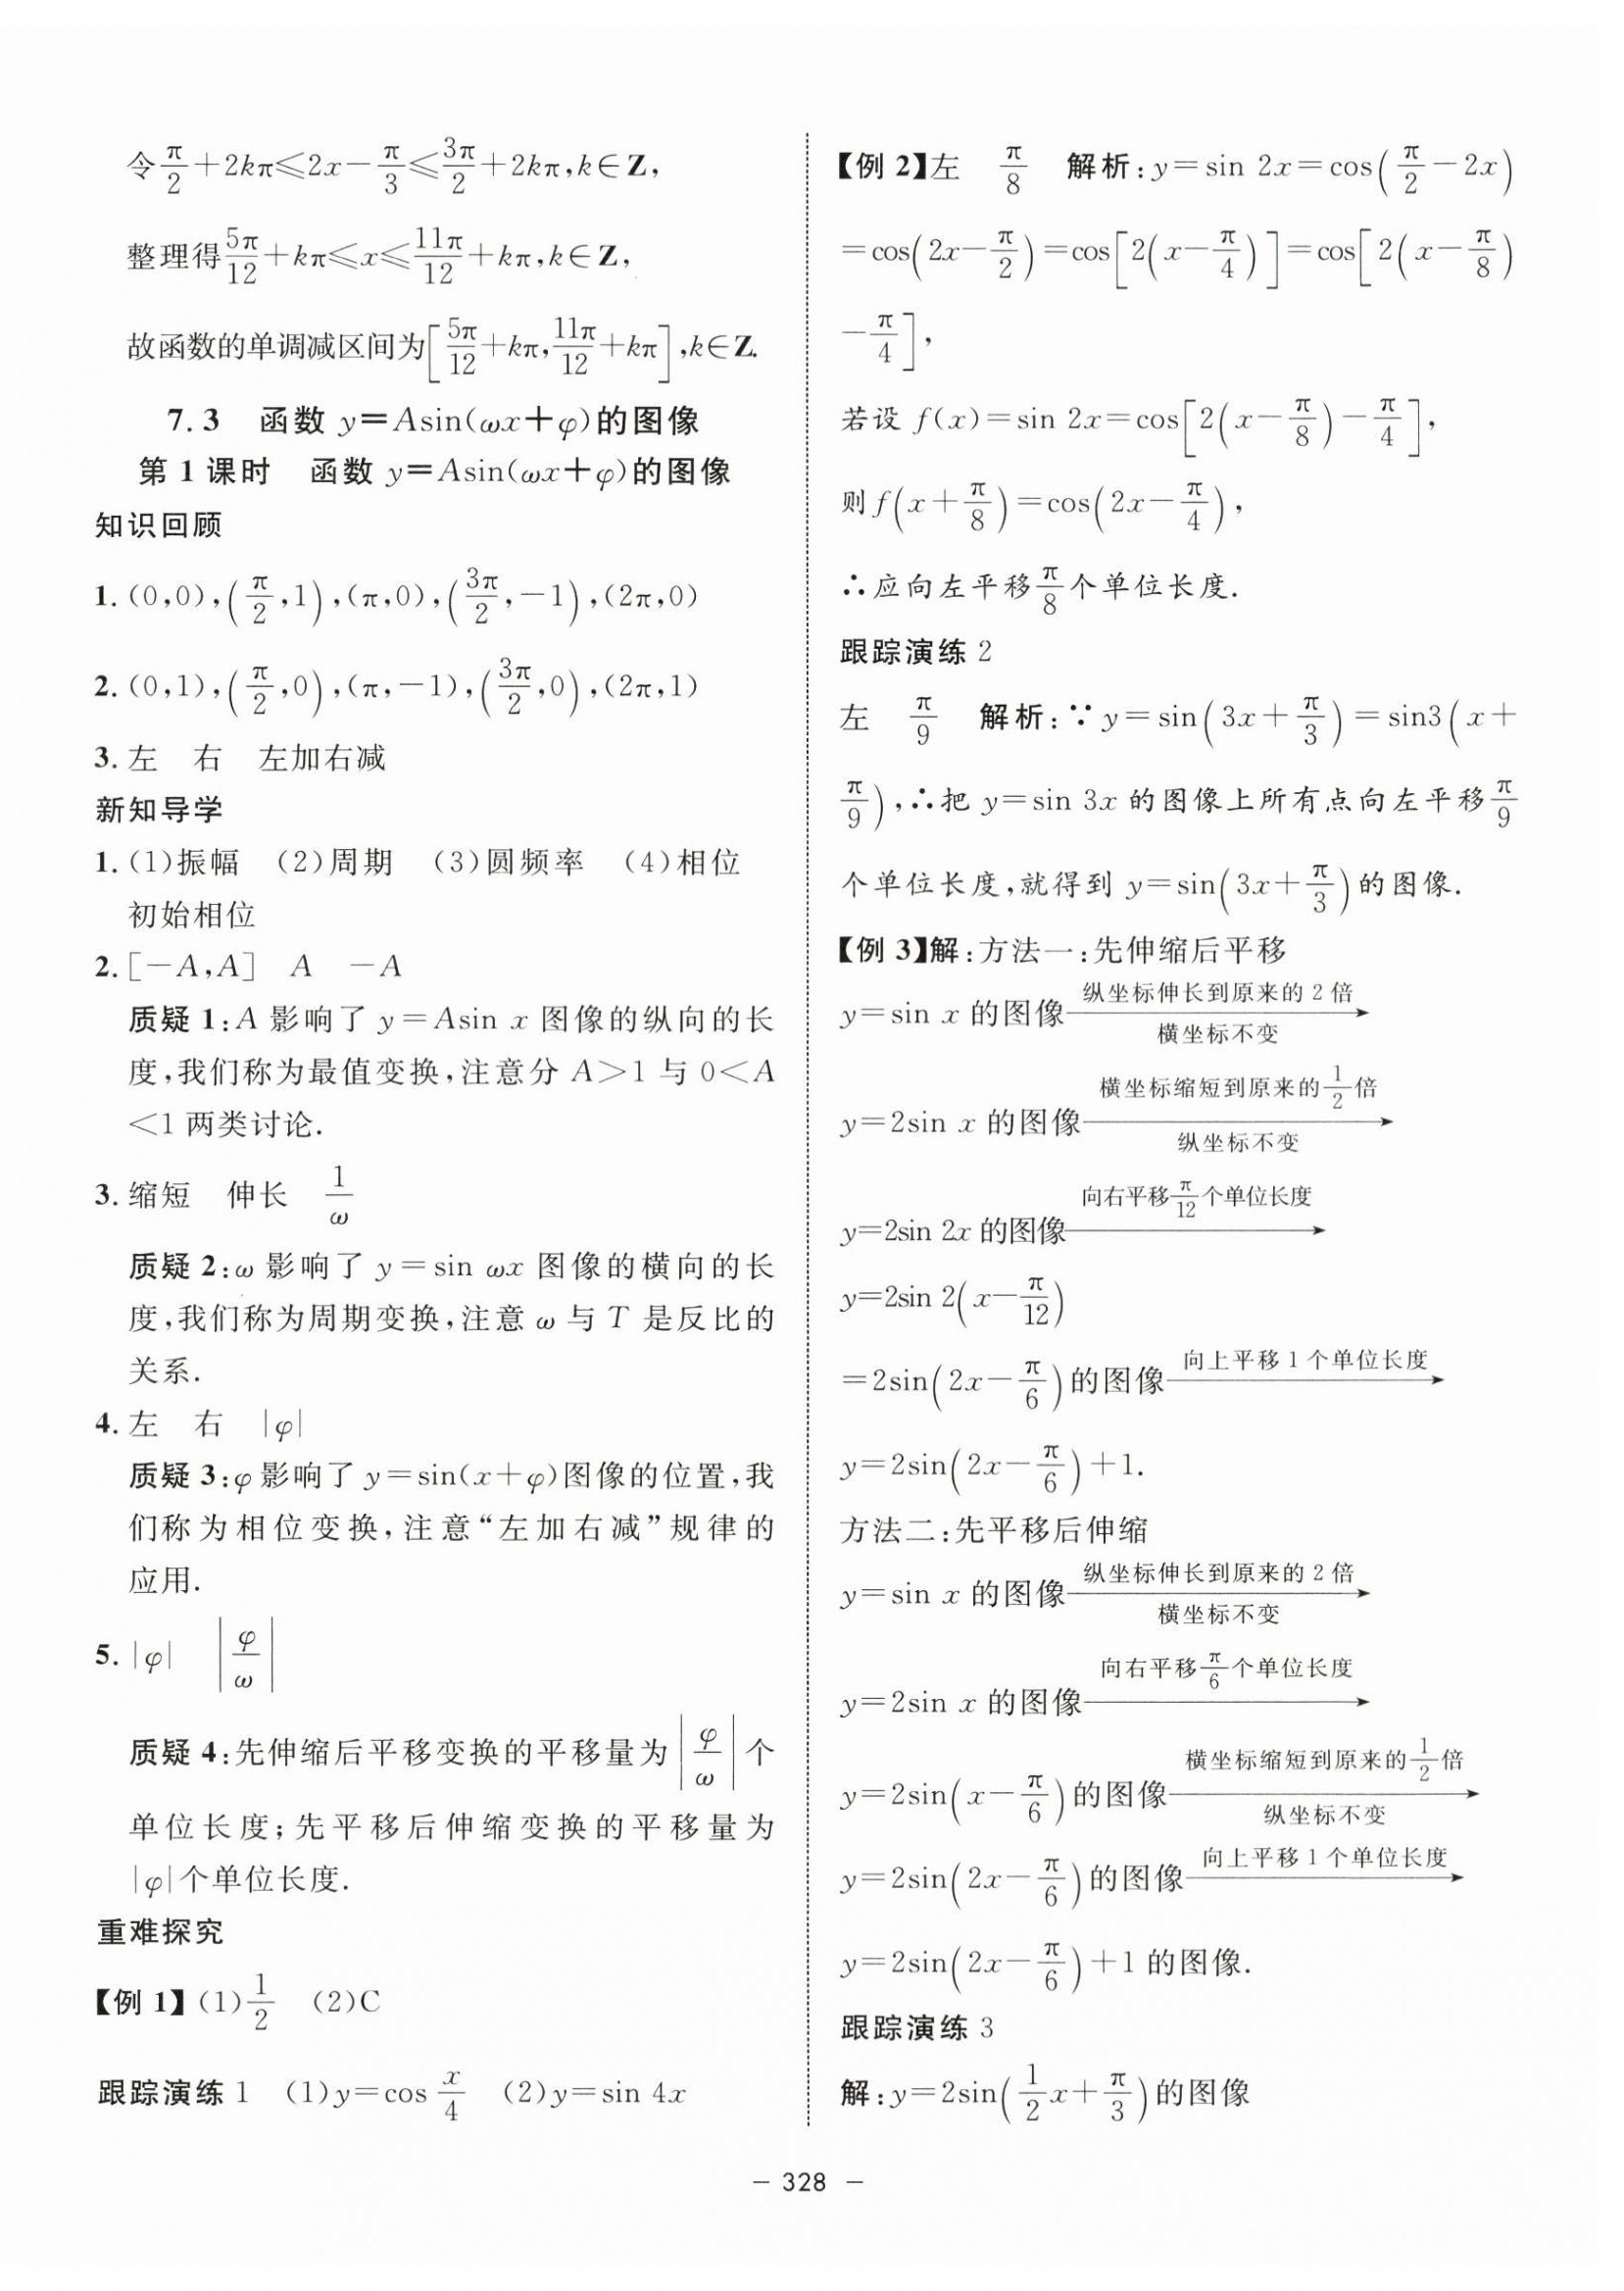 令π/2+2kπ≤2x-π/3≤3π/2+2kπ,k∈Z,
整理得5π/12+kπ≤x≤11π/12+kπ,k∈Z,
故函数的单调减区间为[5π/12+kπ,11π/12+kπ],k∈Z.
7.3 函数 y=Asin(ωx+φ)的图像
第 1 课时 函数 y=Asin(ωx+φ)的图像
知识回顾
1.(0,0),(π/2,1),(π,0),(3π/2,-1),(2π,0)
2.(0,1),(π/2,0),(π,-1),(3π/2,0),(2π,1)
3.左 右 左加右减
新知导学
1.(1)振幅 (2)周期 (3)圆频率 (4)相位
初始相位
2.[-A,A] A -A
质疑 1:A 影响了 y=Asin x 图像的纵向的长
度,我们称为最值变换,注意分 A>1 与 0<A
<1 两类讨论.
3.缩短 伸长 1/ω
质疑 2:ω 影响了 y=sin ωx 图像的横向的长
度,我们称为周期变换,注意 ω 与 T 是反比的
关系.
4.左 右 |φ|
质疑 3:φ影响了 y=sin(x+φ)图像的位置,我
们称为相位变换,注意“左加右减”规律的
应用.
5.|φ| |φ/ω|
质疑 4:先伸缩后平移变换的平移量为|φ/ω|个
单位长度;先平移后伸缩变换的平移量为
|φ|个单位长度.
重难探究
【例 1】(1)1/2 (2)C
跟踪演练 1 (1)y=cos x/4 (2)y=sin 4x
【例 2】左 π/8 解析:y=sin 2x=cos(π/2-2x)
=cos(2x-π/2)=cos[2(x-π/4)]=cos[2(x-π/8)
-π/4],
若设 f(x)=sin 2x=cos[2(x-π/8)-π/4],
则 f(x+π/8)=cos(2x-π/4),
∴应向左平移π/8个单位长度.
跟踪演练 2
左 π/9 解析:∵y=sin(3x+π/3)=sin3(x+
π/9),∴把 y=sin 3x 的图像上所有点向左平移π/9
个单位长度,就得到 y=sin(3x+π/3)的图像.
【例 3】解:方法一:先伸缩后平移
纵坐标伸长到原来的 2 倍
y=sin x 的图像⟶
横坐标不变
横坐标缩短到原来的1/2倍
y=2sin x 的图像⟶
纵坐标不变
向右平移π/12个单位长度
y=2sin 2x 的图像⟶
y=2sin 2(x-π/12)
向上平移 1 个单位长度
=2sin(2x-π/6)的图像⟶
y=2sin(2x-π/6)+1.
方法二:先平移后伸缩
纵坐标伸长到原来的 2 倍
y=sin x 的图像⟶
横坐标不变
向右平移π/6个单位长度
y=2sin x 的图像⟶
横坐标缩短到原来的1/2倍
y=2sin(x-π/6)的图像⟶
纵坐标不变
向上平移 1 个单位长度
y=2sin(2x-π/6)的图像⟶
y=2sin(2x-π/6)+1 的图像.
跟踪演练 3
解:y=2sin(1/2x+π/3)的图像
- 328 -